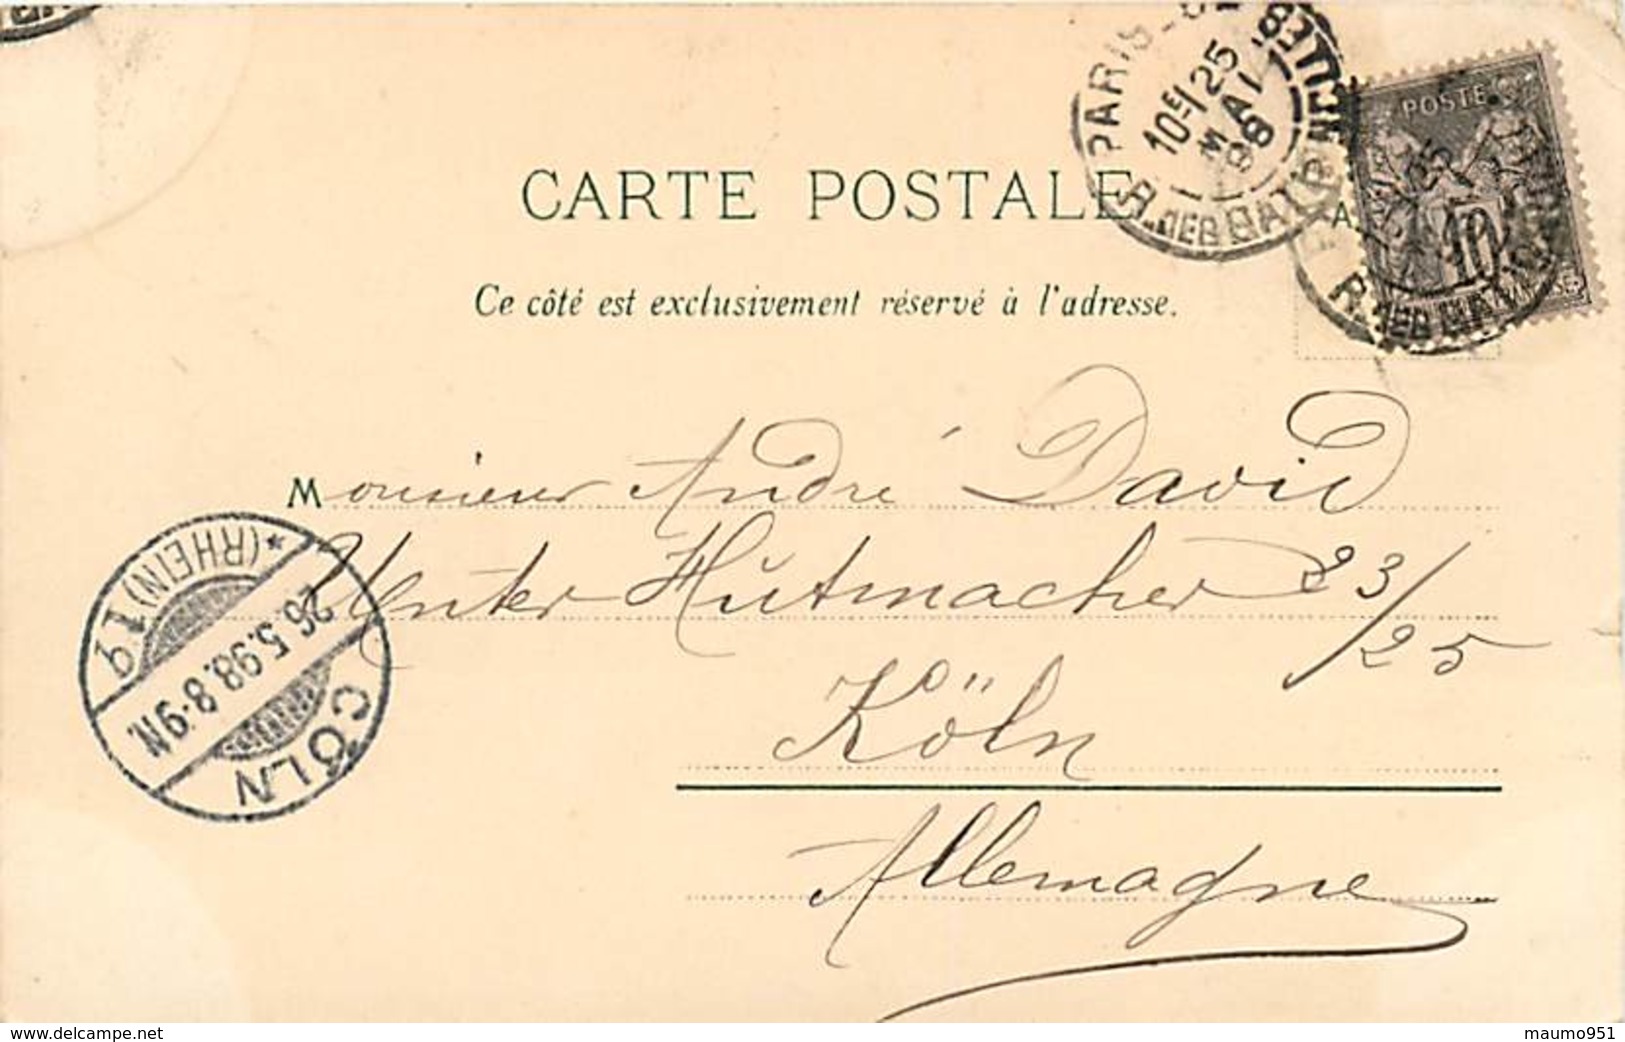 CARTE POSTALE
Ce côté est exclusivement réservé à l'adresse.
PARIS
10E 25
MAI
98
R. 1ER BAT
POSTE
10
R. 1ER BAT
A
Monsieur André David
Unter Hutmacher 23/25
Köln
Allemagne
CÖLN
26.5.98.8-9N.
(RHEIN) 1 q
*
www.delcampe.net
maumo951